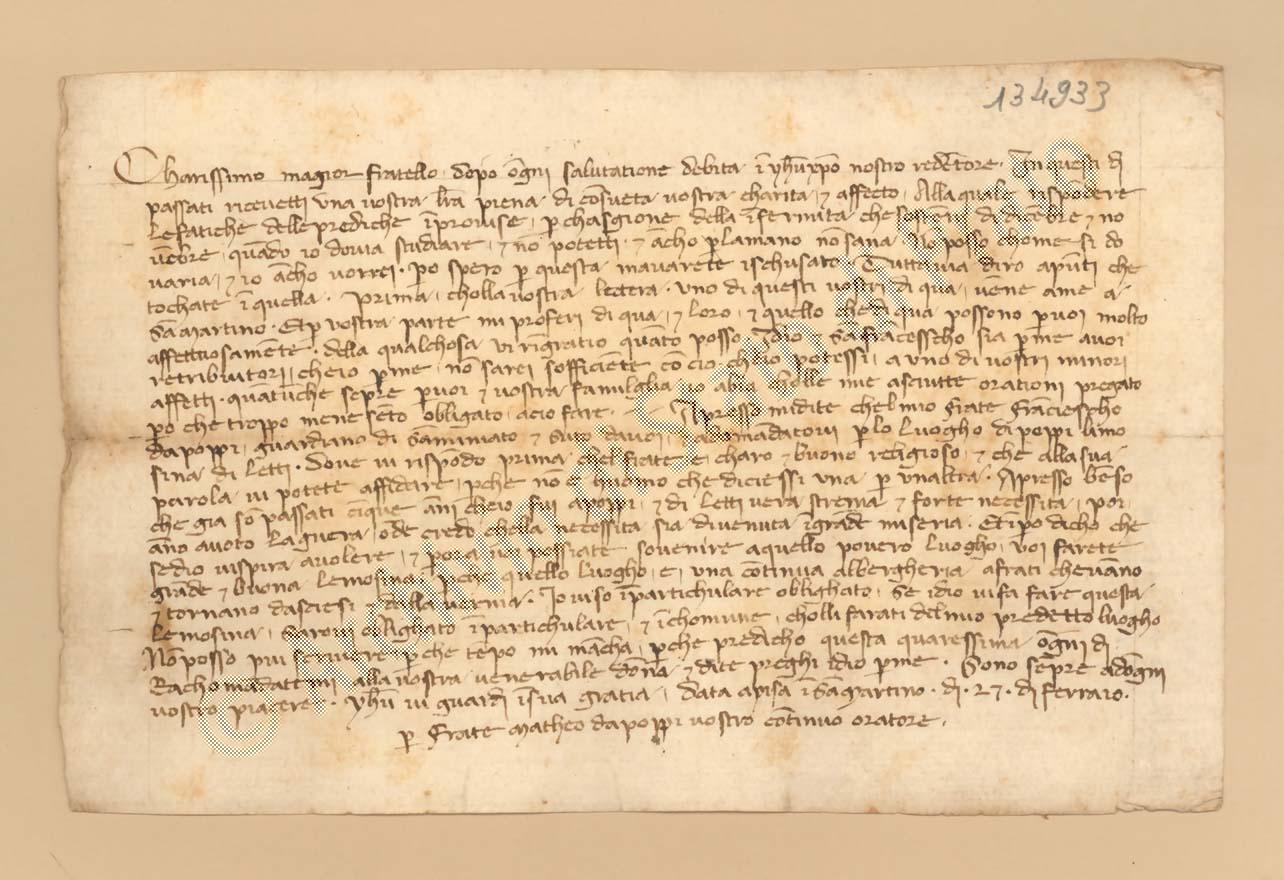 134933
Charissimo magior fratello. dopo õgni salutatione debita ĩ yhũxp̃o nostro redẽtore. In questi dì
passati ricevetti una vostra lr̃a piena di cõsueta vostra charità, ⁊ affecto. Alla quale rispõdere
le fatiche delle prediche ĩprovise, p̱ chasgione della ĩfermità che di dicẽbre ⁊ no
vẽbre, quãdo io dovia studiare, ⁊ nõ potetti. ⁊ ãcho p̱ la mano nõ sana. Nõ posso chome si do
varia, ⁊ io ãcho vorrei. Po spero p̱ questa mavarete ischusato. Tuttavia dirò apũti che
tochate ĩ quella. Prima, cholla vostra lectera. uno di questi vostri di qua, vẽne a me a
Sã Martino. Et p̱ vostra parte mi proferì di qua, ⁊ loro, ⁊ quello che di qua possono p̱ voi molto
affettuosamẽte. della qualchosa vi rĩgratio quãto posso. Idio Sã francesscho sia p̱ me a voi
retributori, cheio p̱ me, nõ sarei sofficiẽte cõ ciò cheio potessi, a uno di vostri minori
affetti. quãtũche sẽpre p̱ voi ⁊ vostra famiglia io abia cholle mie asciutte orationi pregato
po che troppo mene sẽto obligato, acio fare. Apresso midite chel mio frate Frãciescho
da poppi, guardiano di Sãminiato ⁊ suto davoi, ⁊ adomãdatovi p̱ lo luogho di poppi limo
sina di letti. Dove vi rispõdo prima chel frate è charo ⁊ buono religioso, ⁊ che alla sua
parola vi potete affidare, p̱che nõ è huomo che diciessi una p̱ unaltra. Apresso bẽ so
che già sõ passati cique ãni cheio fui apoppi, ⁊ di letti vera strema ⁊ forte necessità, poi
ãno avuto la guera, õde credo chella necessità sia divenuta ĩ grãde miseria. Et po dicho che
se dio vispira avolere, ⁊ possiate sovenire a quello povero luogho, voi farete
grãde ⁊ buona lemosina. p̱che quello luogho, è, una cõtinua albergheria a frati che vãno
⁊ tornano dasciesi ⁊ dalla vernia. Io viso ĩparticulare oblighato. Se idio vi fa fare questa
lemosina, sarovi oblighato ĩ partichulare, ⁊ ĩ chomune, cholli farati del mio predetto luogho
Nõ posso più scrivere p̱che tẽpo mi mãcha, p̱che predicho questa quaressima õgni dì
Rachomãdatemi alla vostra venerabile dõna, ⁊ date preghi idio p̱ me. Sono sẽpre adõgni
vostro piacere. Yhũ vi guardi ĩ sua gratia, Data apisa ĩ Sã Martino. dì. 27. di ferraro.
p̱ Frate Matheo da poppi vostro cõtinuo oratore.